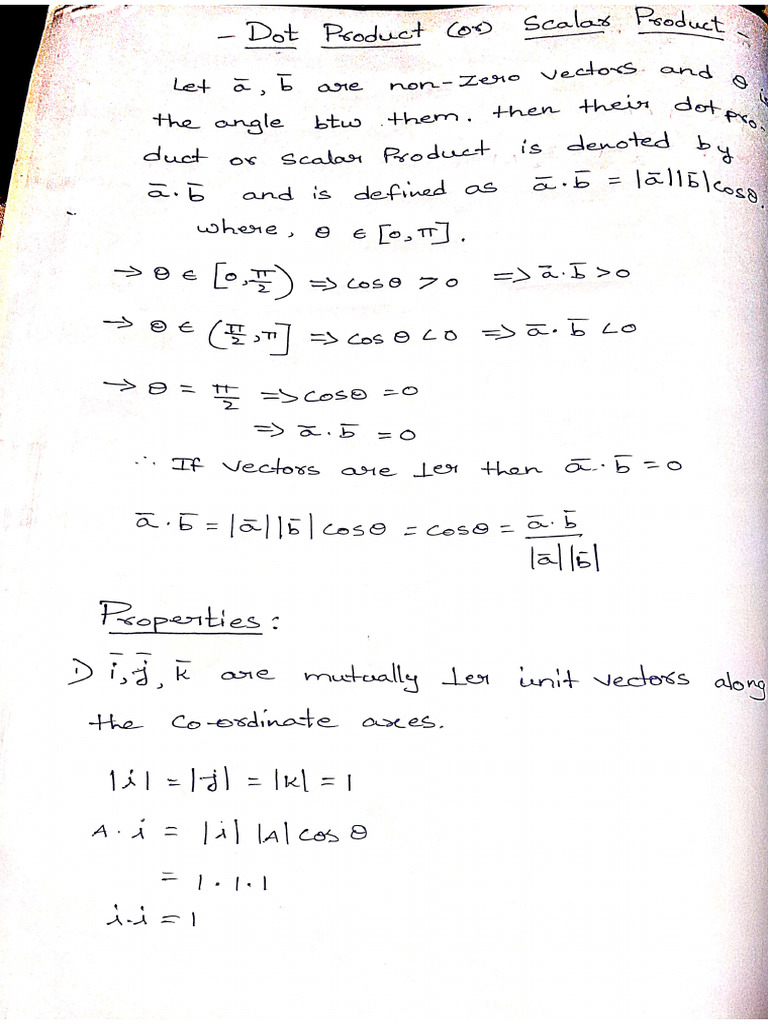 - Dot Product (or) Scalar Product -
Let ā, b̄ are non-zero vectors and θ is
the angle btw them. then their dot pro-
duct or scalar Product is denoted by
ā·b̄ and is defined as ā·b̄ = |ā||b̄|cosθ.
where, θ ∈ [0,π].
→ θ ∈ [0,π/2) => cosθ > 0 => ā·b̄ > 0
→ θ ∈ (π/2,π] => cos θ < 0 => ā·b̄ < 0
→ θ = π/2 => cosθ = 0
=> ā·b̄ = 0
∴ If vectors are ⊥er then ā·b̄ = 0
ā·b̄ = |ā||b̄|cosθ = cosθ = ā·b̄/|ā||b̄|
Properties:
1) ī, j̄, k̄ are mutually ⊥er unit vectors along
the co-ordinate axes.
|i| = |j| = |k| = 1
A·i = |i| |A| cos θ
= 1·1·1
i·i = 1